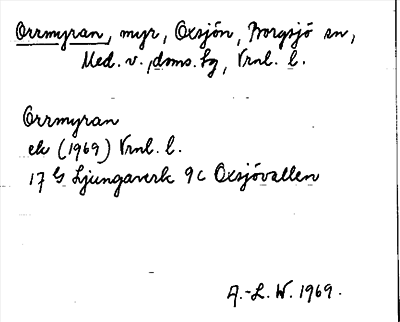 Orrmyran, myr, Oxsjön, Borgsjö sn,
Med. v., doms. hg, Vrnl. l.
Orrmyran
ek (1969) Vrnl. l.
17 G Ljungaverk 9c Oxsjövallen
A.-L. W. 1969.